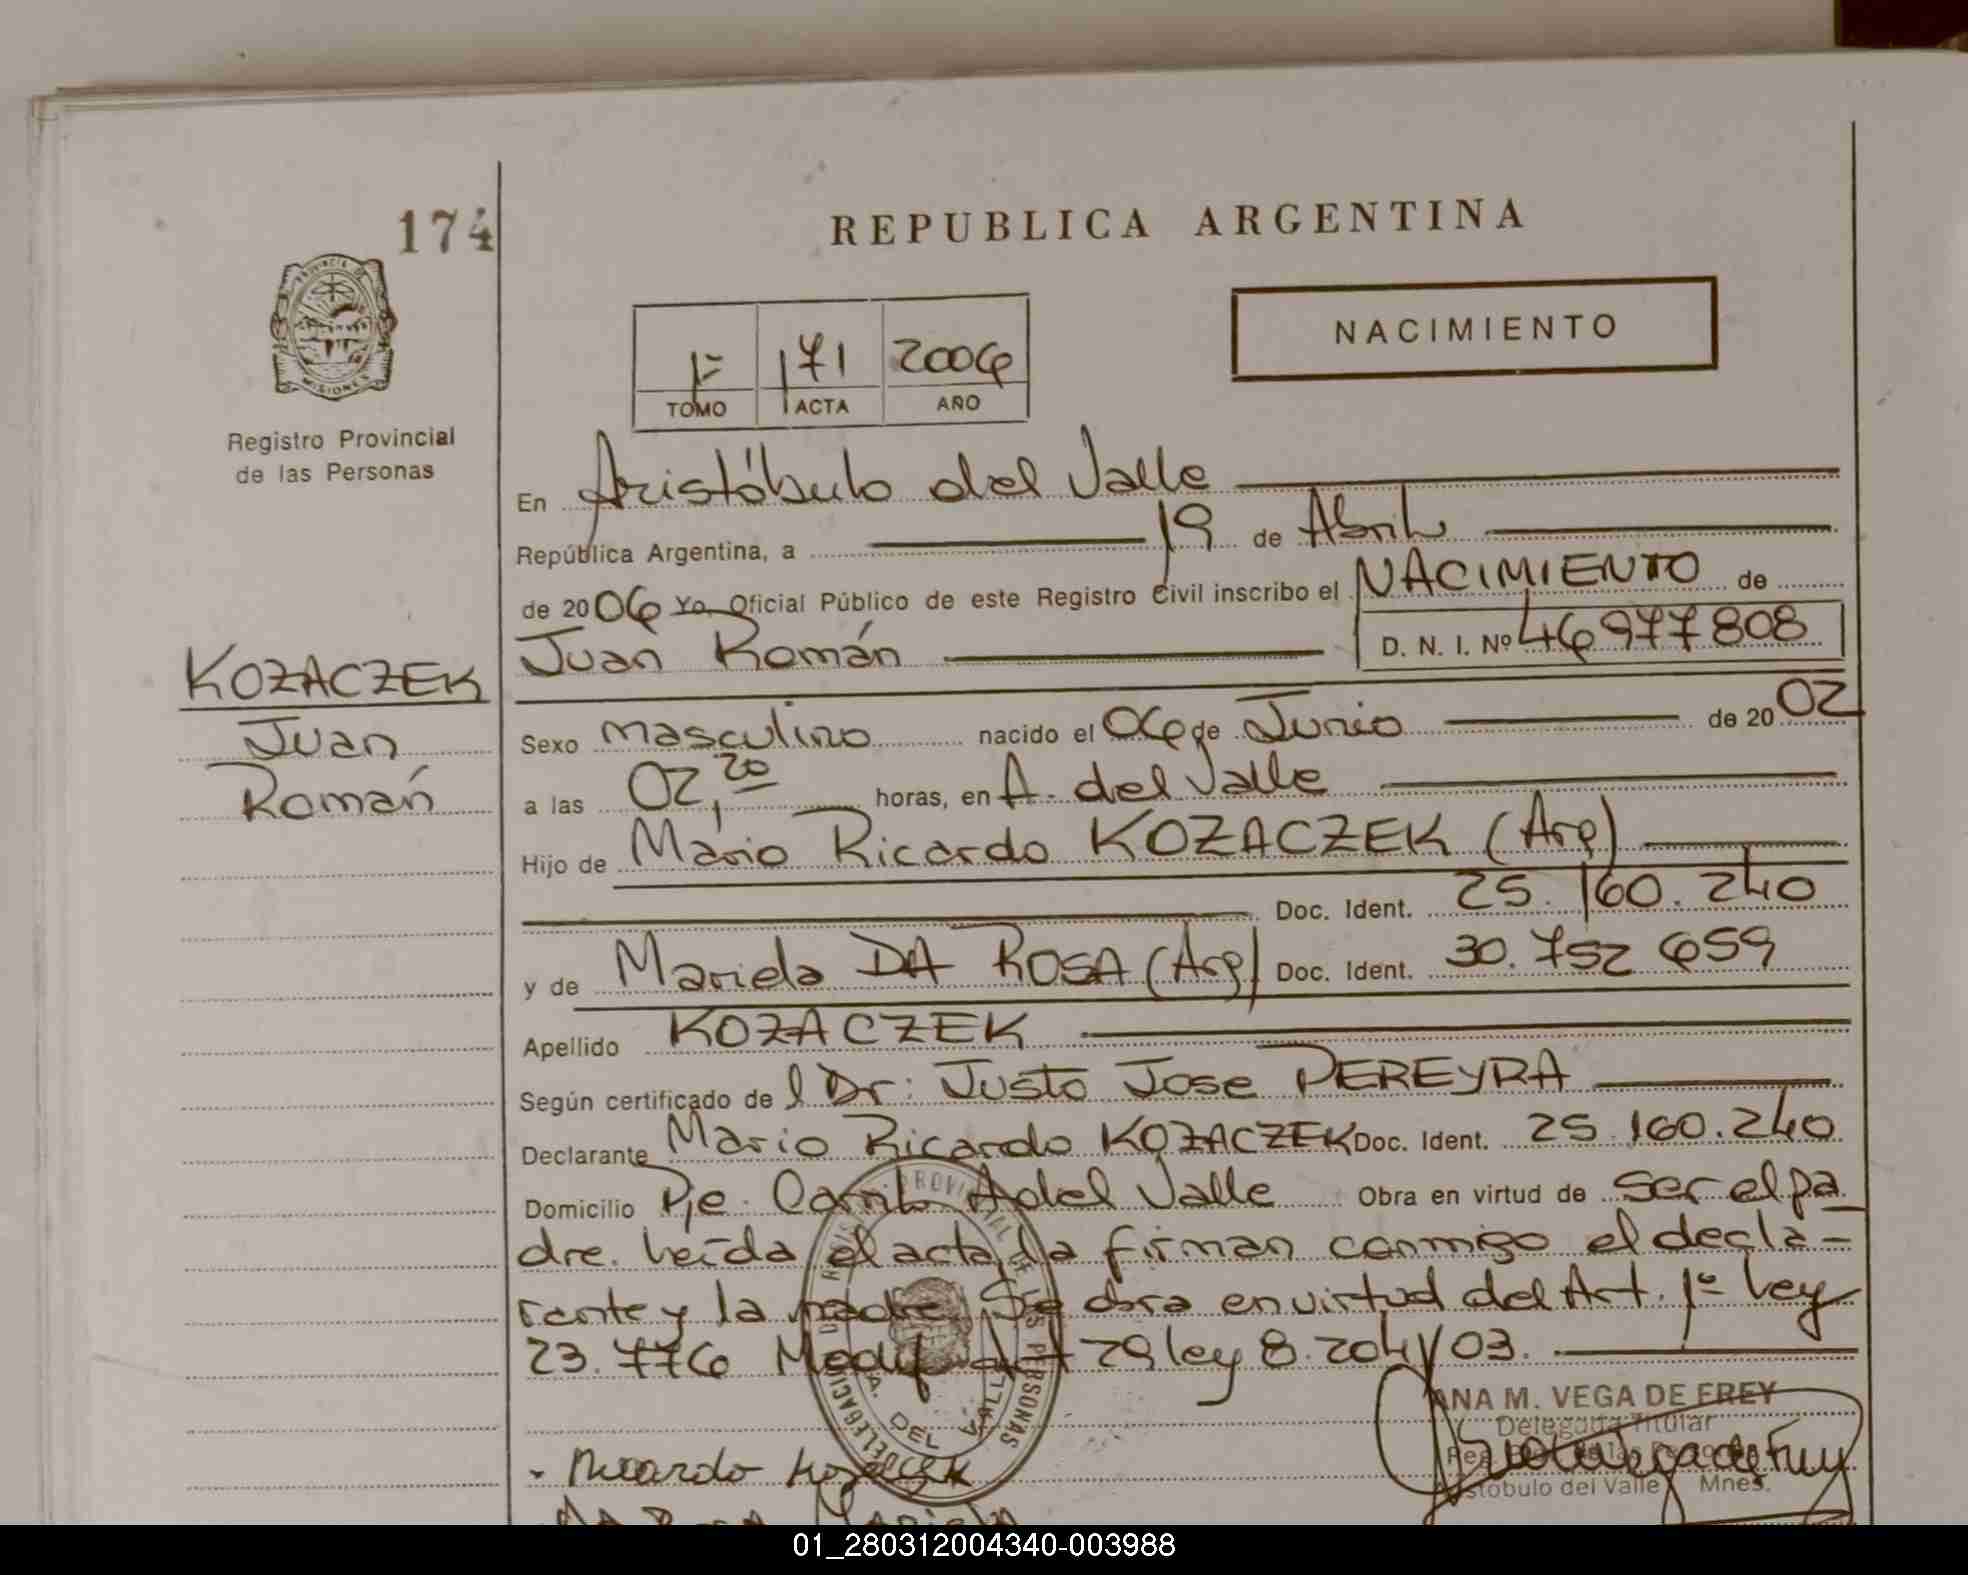 174
REPUBLICA ARGENTINA
PROVINCIA DE
MISIONES
NACIMIENTO
1º 171 2006
TOMO ACTA AÑO
Registro Provincial
de las Personas
En Aristóbulo del Valle
República Argentina, a 19 de Abril
de 2006 Yo, Oficial Público de este Registro Civil inscribo el NACIMIENTO de
Juan Román D. N. I. Nº 46977808
KOZACZEK
Juan
Román
Sexo masculino nacido el 06 de Junio de 2002
a las 02,20 horas, en A. del Valle
Hijo de Mario Ricardo KOZACZEK (Arg)
Doc. Ident. 25.160.240
y de Mariela DA ROSA (Arg) Doc. Ident. 30.752 659
Apellido KOZACZEK
Según certificado de l Dr: Justo Jose PEREYRA
Declarante Mario Ricardo KOZACZEK Doc. Ident. 25.160.240
Domicilio Pje. A del Valle Obra en virtud de ser el pa
dre. Leída el acta, la firman conmigo el decla-
rante y la madre. Se obra en virtud del Art. 1º Ley
23.776 Modif Art 29 ley 8.204/03.
ANA M. VEGA DE FREY
Delegada Titular
Aristobulo del Valle Mnes.
DEL VALLE
Ricardo Kozaczek
DA ROSA Mariela
01_280312004340-003988